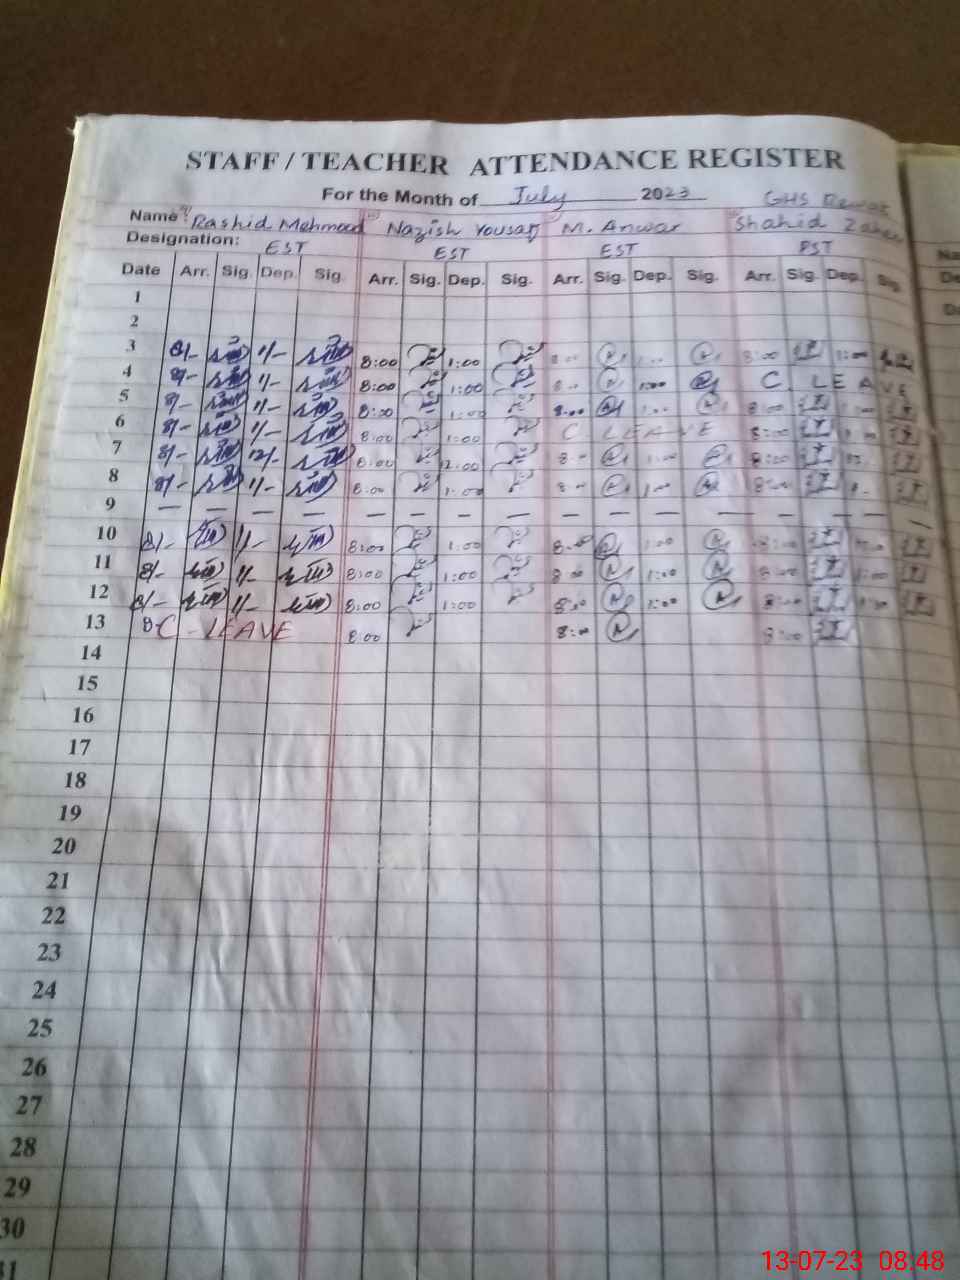 STAFF / TEACHER ATTENDANCE REGISTER
For the Month of July 2023 GHS
Name: Rashid Mehmood Nazish Yousaf M. Anwar Shahid
Designation: EST EST EST PST
Date Arr. Sig. Dep. Sig. Arr. Sig. Dep. Sig. Arr. Sig. Dep. Sig. Arr. Sig. Dep. Sig.
1
2
3 8/- 1/- 8:00 1:00 8:00 1:00 8:00 1:00
4 8/- 1/- 8:00 1:00 8:00 1:00 C. LEAVE
5 8/- 1/- 8:00 1:00 8:00 1:00 8:00 1:00
6 8/- 1/- 8:00 1:00 C. LEAVE 8:00
7 8/- 12/- 8:00 12:00 8:00 8:00
8 8/- 1/- 8:00 1:00 8:00 1:00 8:00
9 — — — — — — — — — — — — — — — —
10 8/- 1/- 8:00 1:00 8:00 1:00 8:00
11 8/- 1/- 8:00 1:00 8:00 1:00 8:00 1:00
12 8/- 1/- 8:00 1:00 8:00 1:00 8:00 1:00
13 C - LEAVE 8:00 8:00 8:00
14
15
16
17
18
19
20
21
22
23
24
25
26
27
28
29
30
31
13-07-23 08:48